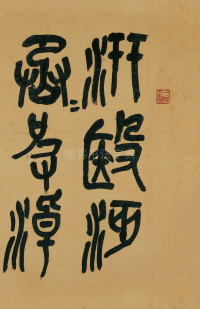 汧殹沔
丞皮淖